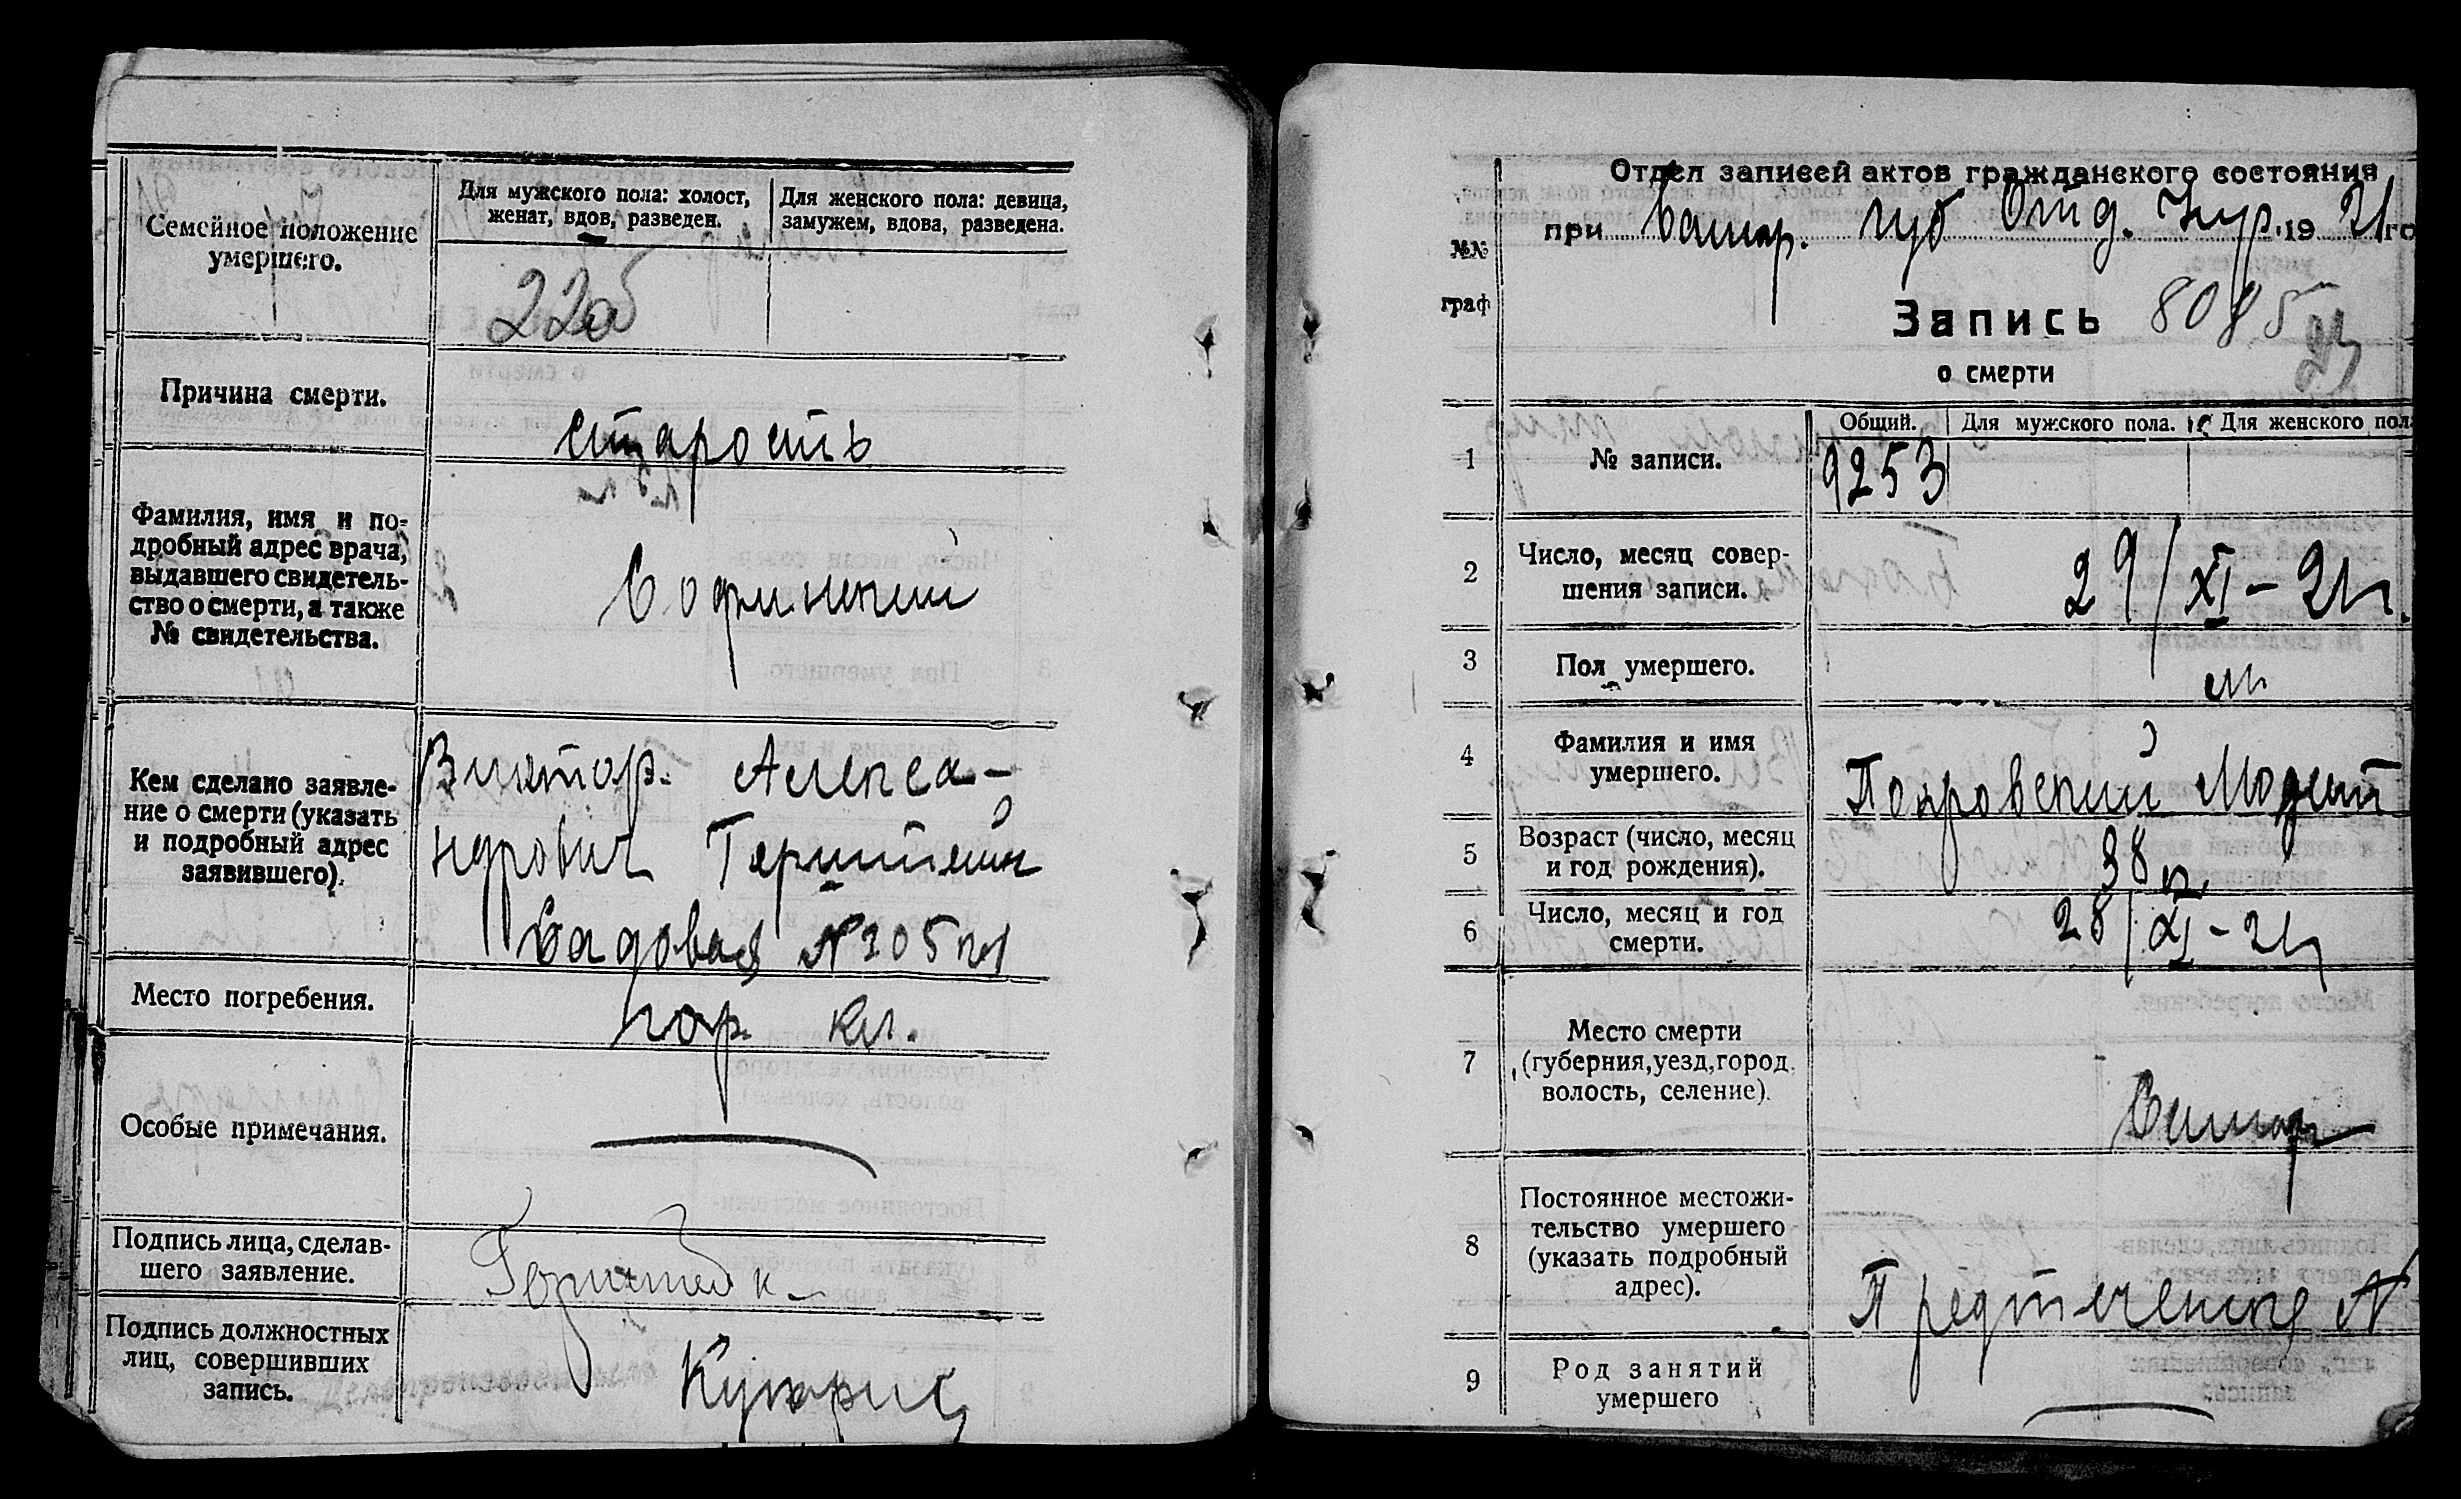 Семейное положение
умершего.
Для мужского пола: холост,
женат, вдов, разведен.
Для женского пола: девица,
замужем, вдова, разведена.
22об
Причина смерти.
старость
Фамилия, имя и по-
дробный адрес врача,
выдавшего свидетель-
ство о смерти, а также
№ свидетельства.
Софинский
Кем сделано заявле-
ние о смерти (указать
и подробный адрес
заявившего).
Виктор Алекса-
ндрович Герштейн
Садовая №205
Место погребения.
гор. кл.
Особые примечания.
Подпись лица, сделав-
шего заявление.
Подпись должностных
лиц, совершивших
запись.
Отдел записей актов гражданского состояния
при Самар. Губ Отд. 1921 го
№№
граф
Запись 8085
23
о смерти
Общий. Для мужского пола. Для женского пол
1 № записи. 9253
2 Число, месяц совер-
шения записи.
29/XI-21г.
3 Пол умершего. м
4 Фамилия и имя
умершего.
Покровский Модест
5 Возраст (число, месяц
и год рождения).
38 л.
6 Число, месяц и год
смерти.
28/XI-21г
7 Место смерти
(губерния, уезд, город,
волость, селение).
Самар
8 Постоянное местожи-
тельство умершего
(указать подробный
адрес).
Предтеченская №
9 Род занятий
умершего